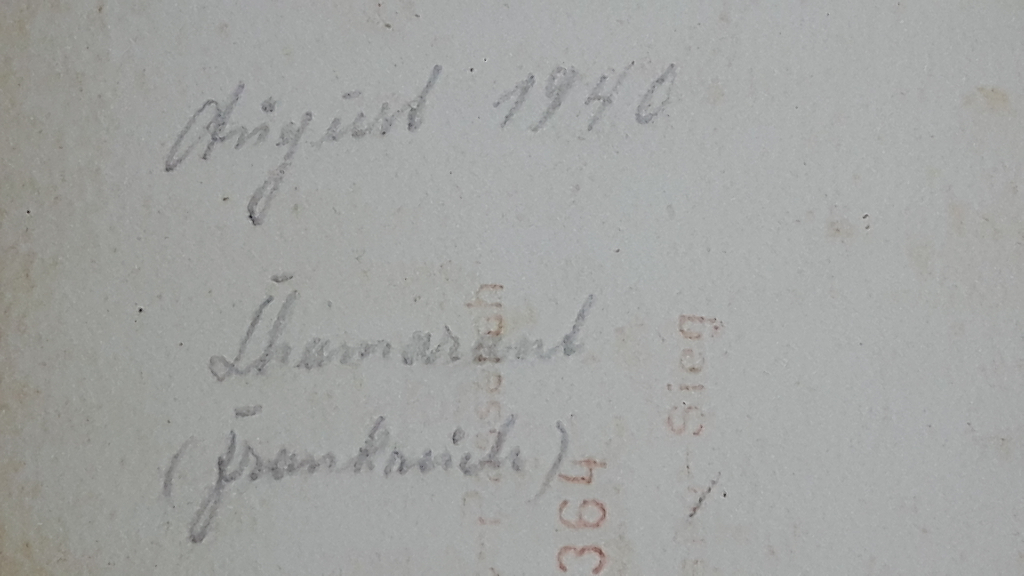 August 1940
Chamarant
(Frankreich)
364
Sieg